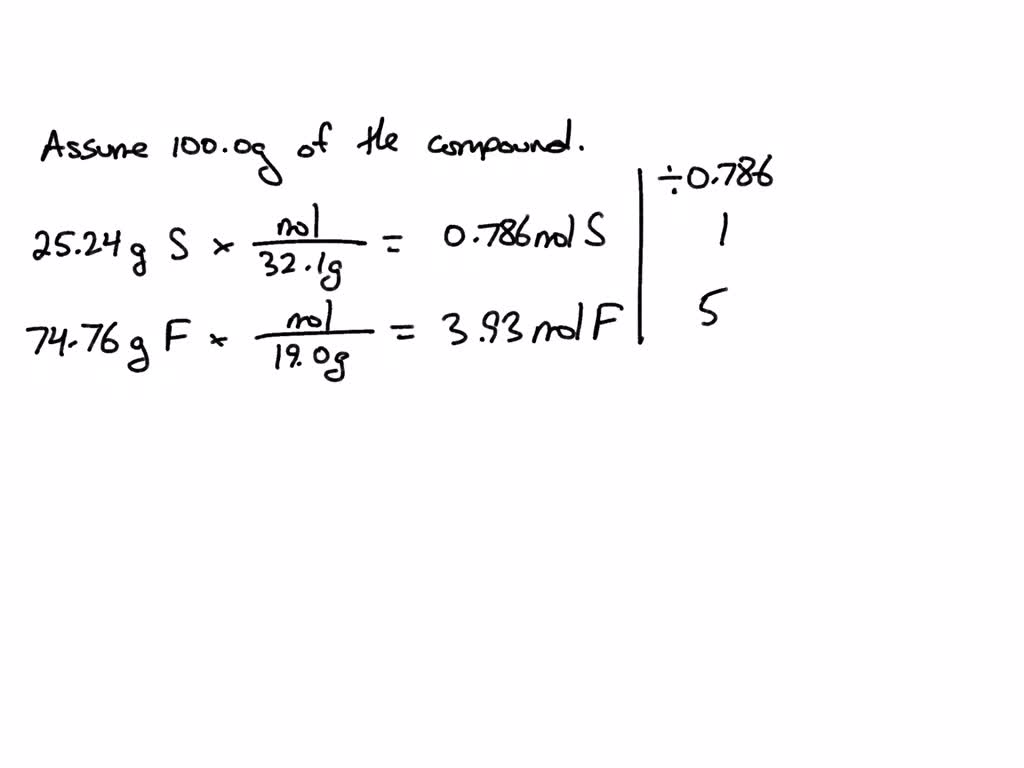 Assume 100.0g of the compound.
÷0.786
25.24g S × mol/32.1g = 0.786 mol S | 1
74.76g F × mol/19.0g = 3.93 mol F | 5